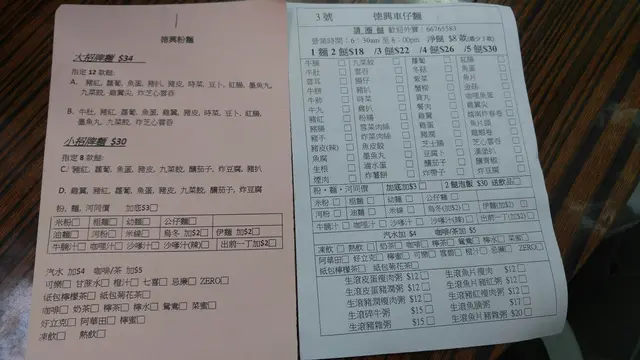 德興粉麵
大招牌麵 $34
指定12款餸:
A. 豬紅, 蘿蔔, 魚蛋, 豬扒, 豬皮, 時菜, 豆卜, 紅腸, 墨魚丸, 九菜餃, 雞翼尖, 炸芝心雲吞
B. 牛肚, 豬紅, 蘿蔔, 魚蛋, 雞翼, 豬皮, 時菜, 豆卜, 紅腸, 墨魚丸, 九菜餃, 炸芝心雲吞
小招牌麵 $30
指定8款餸:
C. 豬紅, 蘿蔔, 魚蛋, 豬皮, 九菜餃, 釀茄子, 炸豆腐, 豬扒
D. 雞翼, 豬紅, 蘿蔔, 魚蛋, 豬皮, 九菜餃, 釀茄子, 炸豆腐
粉, 麵, 河同價 加底$3□
米粉□ 粗麵□ 幼麵□ 公仔麵□
油麵□ 河粉□ 米線□ 烏冬 加$2□ 伊麵 加$2□
牛腩汁□ 咖喱汁□ 沙嗲汁□ 沙嗲汁(辣)□ 出前一丁加$2□
汽水 加$4 咖啡/茶 加$5
可樂□ 甘蔗水□ 橙汁□ 七喜□ 忌廉□ ZERO□
紙包檸檬茶□ 紙包菊花茶□
咖啡□ 奶茶□ 檸茶□ 檸水□ 鴛鴦□ 菜蜜□
好立克□ 阿華田□ 檸蜜□
凍飲□ 熱飲□
3號 德興車仔麵
請圈餸 歡迎外賣: 66765583
營業時間: 6:30am 至 8:00pm 淨餸 $8 款(最少2款)
1麵2餸$18 /3餸$22 /4餸$26 /5餸$30
牛腩□ 九菜餃□ 蘿蔔□ 紅腸□
牛肚□ 雲吞□ 冬菇□ 魚蛋□
豬扒□ 紫菜□ 魚片□
牛筋□ 豬膶□ 蟹柳□
時菜□ 雞丸□ 咖喱魚蛋□
豬紅□ 粉腸□ 雞翼□ 雞翼尖□
豬腸□ 雲菜肉絲□ 雞蛋□
豬手□ 炸菜肉絲□ 豬潤□ 魚片頭□
豬皮(辣)□ 魚皮餃□ 芝士腸□
魚腐□ 墨魚丸□ 豆腐卜□ 芝心雲吞□
生根□ 滷水蛋□ 釀茄子□
煙肉□ 炸薯餅□ 炸帶子□ 炸豆腐□
粉, 麵, 河同價 加底$3□ 2餸泡飯 $30 送飲品□
米粉□ 粗麵□ 幼麵□ 公仔麵□
油麵□ 河粉□ 米線□ 烏冬(加$2)□ 伊麵(加$2)□
牛腩汁□ 咖喱汁□ 沙嗲汁□ 沙嗲汁(辣)□ 出前一丁(加$2)□
汽水加 $4 咖啡/茶加 $5
凍飲□ 熱飲□ 奶茶□ 咖啡□ 檸茶□ 鴛鴦□ 檸水□ 菜蜜□
阿華田□ 好立克□ 檸蜜□ 可樂□
紙包檸檬茶□ 紙包菊花茶□
生滾皮蛋瘦肉粥 $12□ 生滾魚片瘦肉粥 $12□
生滾皮蛋豬潤粥 $12□ $12□
生滾豬潤瘦肉粥 $12□ 生滾豬紅瘦肉粥 $12□
生滾碎牛粥 $15□ 生滾魚腩粥 $17□
生滾豬雜粥 $15□ 生滾魚片豬雜粥 $20□